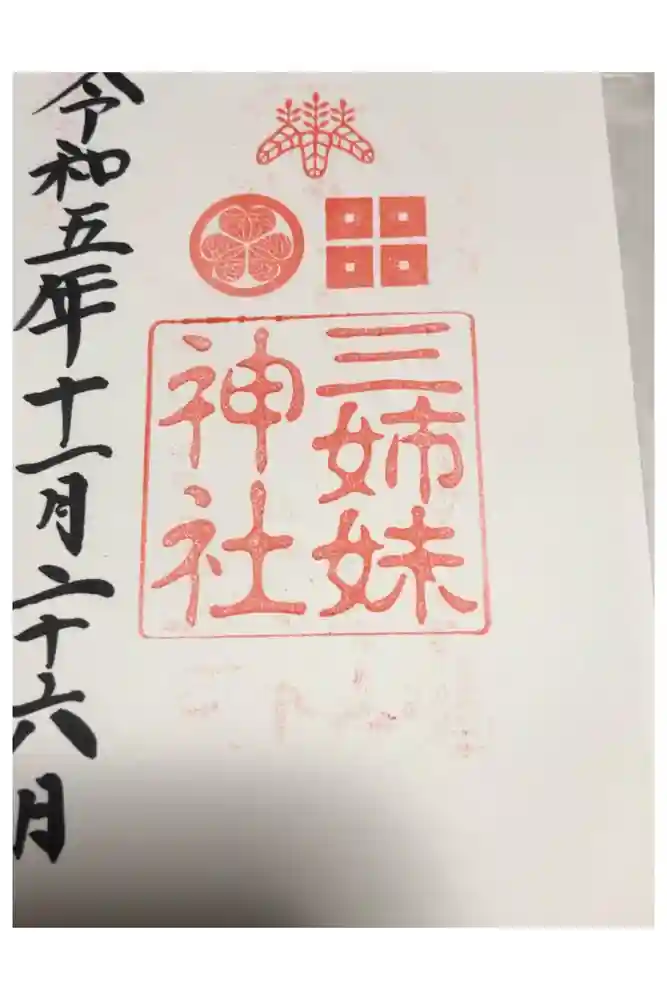 三姉妹
神社
令和五年十一月二十六月